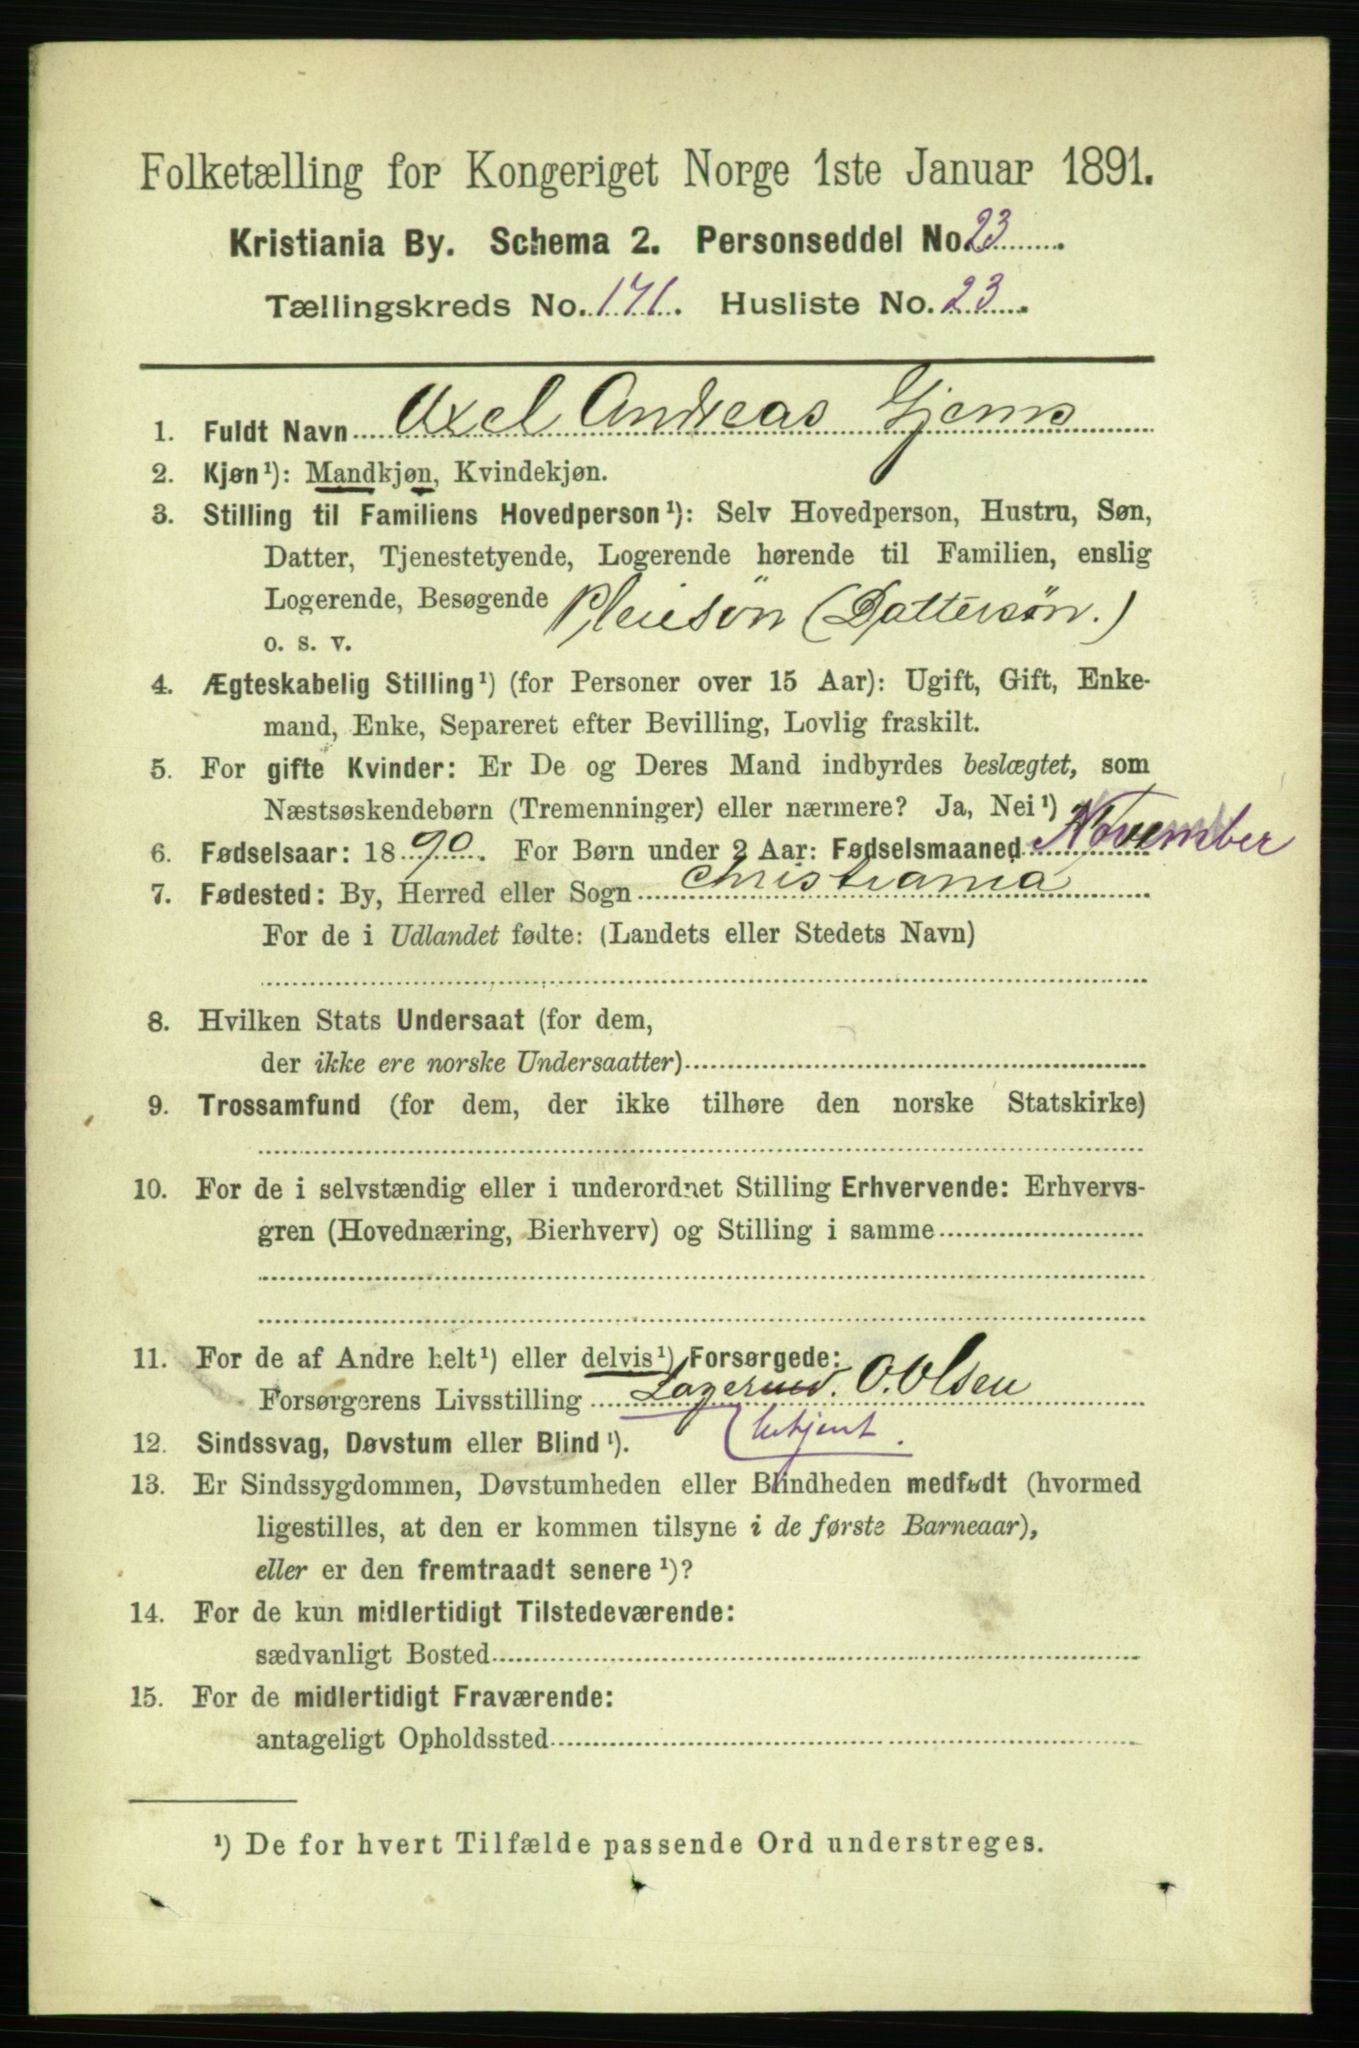 Folketælling for Kongeriget Norge 1ste Januar 1891.
Kristiania By. Schema 2. Personseddel No. 23
Tællingskreds No. 171. Husliste No. 23.
1. Fuldt Navn Axel Andreas Gjems
2. Kjøn¹): Mandkjøn, Kvindekjøn.
3. Stilling til Familiens Hovedperson¹): Selv Hovedperson, Hustru, Søn,
Datter, Tjenestetyende, Logerende hørende til Familien, enslig
Logerende, Besøgende Pleiesön (Dattersön.)
o. s. v.
4. Ægteskabelig Stilling¹) (for Personer over 15 Aar): Ugift, Gift, Enke-
mand, Enke, Separeret efter Bevilling, Lovlig fraskilt.
5. For gifte Kvinder: Er De og Deres Mand indbyrdes beslægtet, som
Næstsøskendebørn (Tremenninger) eller nærmere? Ja, Nei¹)
6. Fødselsaar: 1890. For Børn under 2 Aar: Fødselsmaaned November
7. Fødested: By, Herred eller Sogn Christiania
For de i Udlandet fødte: (Landets eller Stedets Navn)
8. Hvilken Stats Undersaat (for dem,
der ikke ere norske Undersaatter)
9. Trossamfund (for dem, der ikke tilhøre den norske Statskirke)
10. For de i selvstændig eller i underordnet Stilling Erhvervende: Erhvervs-
gren (Hovednæring, Bierhverv) og Stilling i samme
11. For de af Andre helt¹) eller delvis¹) Forsørgede:
Forsørgerens Livsstilling O. Olsen
12. Sindssvag, Døvstum eller Blind¹).
13. Er Sindssygdommen, Døvstumheden eller Blindheden medfødt (hvormed
ligestilles, at den er kommen tilsyne i de første Barneaar),
eller er den fremtraadt senere¹)?
14. For de kun midlertidigt Tilstedeværende:
sædvanligt Bosted
15. For de midlertidigt Fraværende:
antageligt Opholdssted
¹) De for hvert Tilfælde passende Ord understreges.